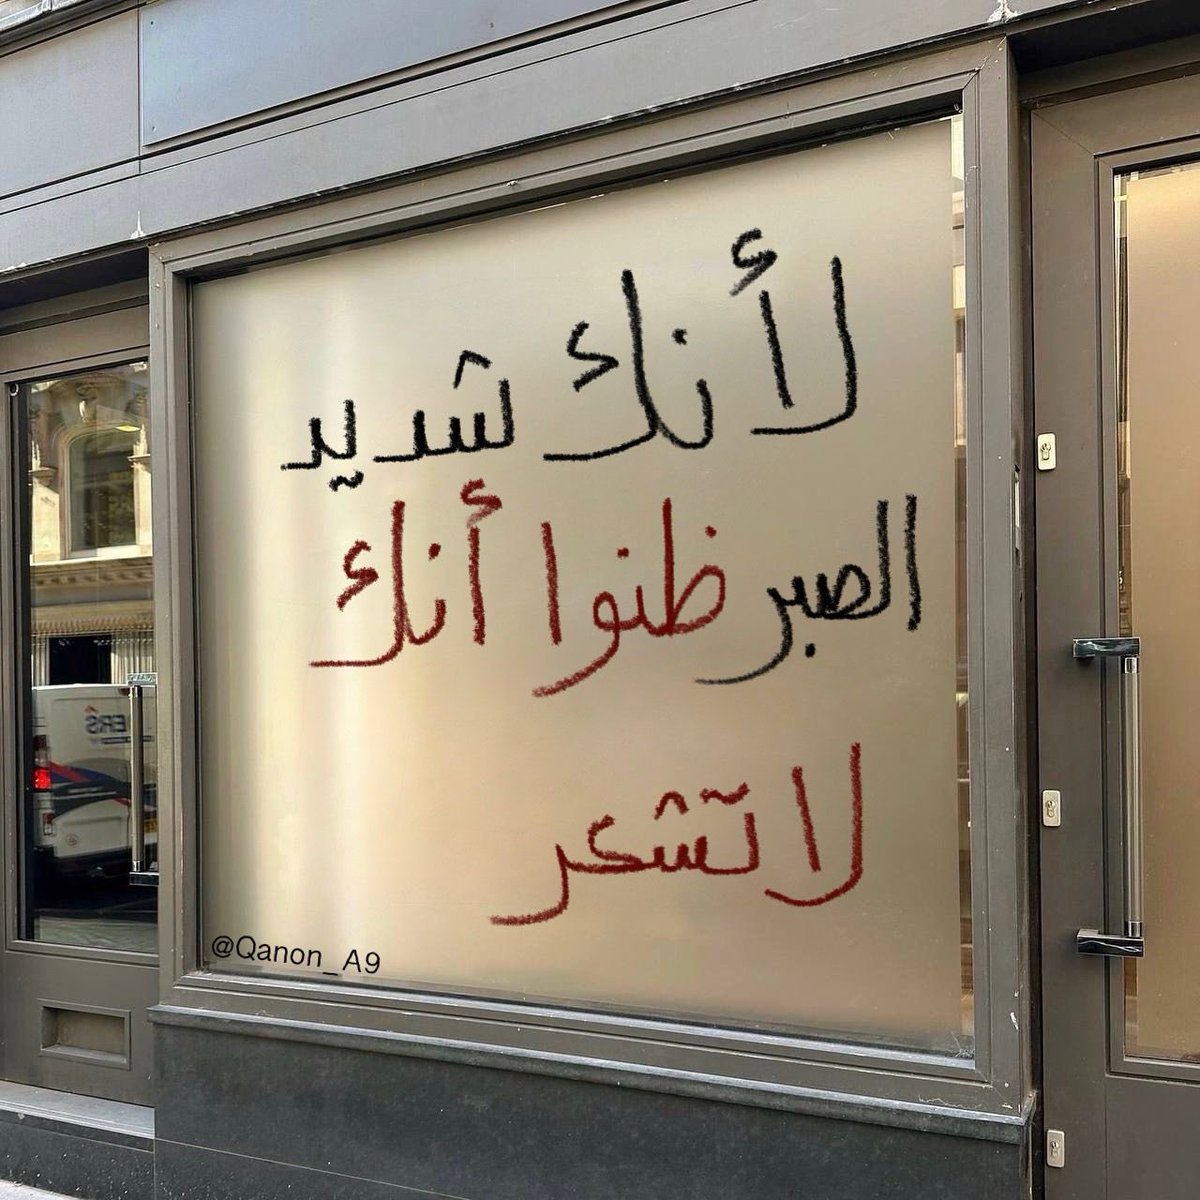 لأنك شديد
الصبر ظنوا أنك
لا تشعر
@Qanon_A9